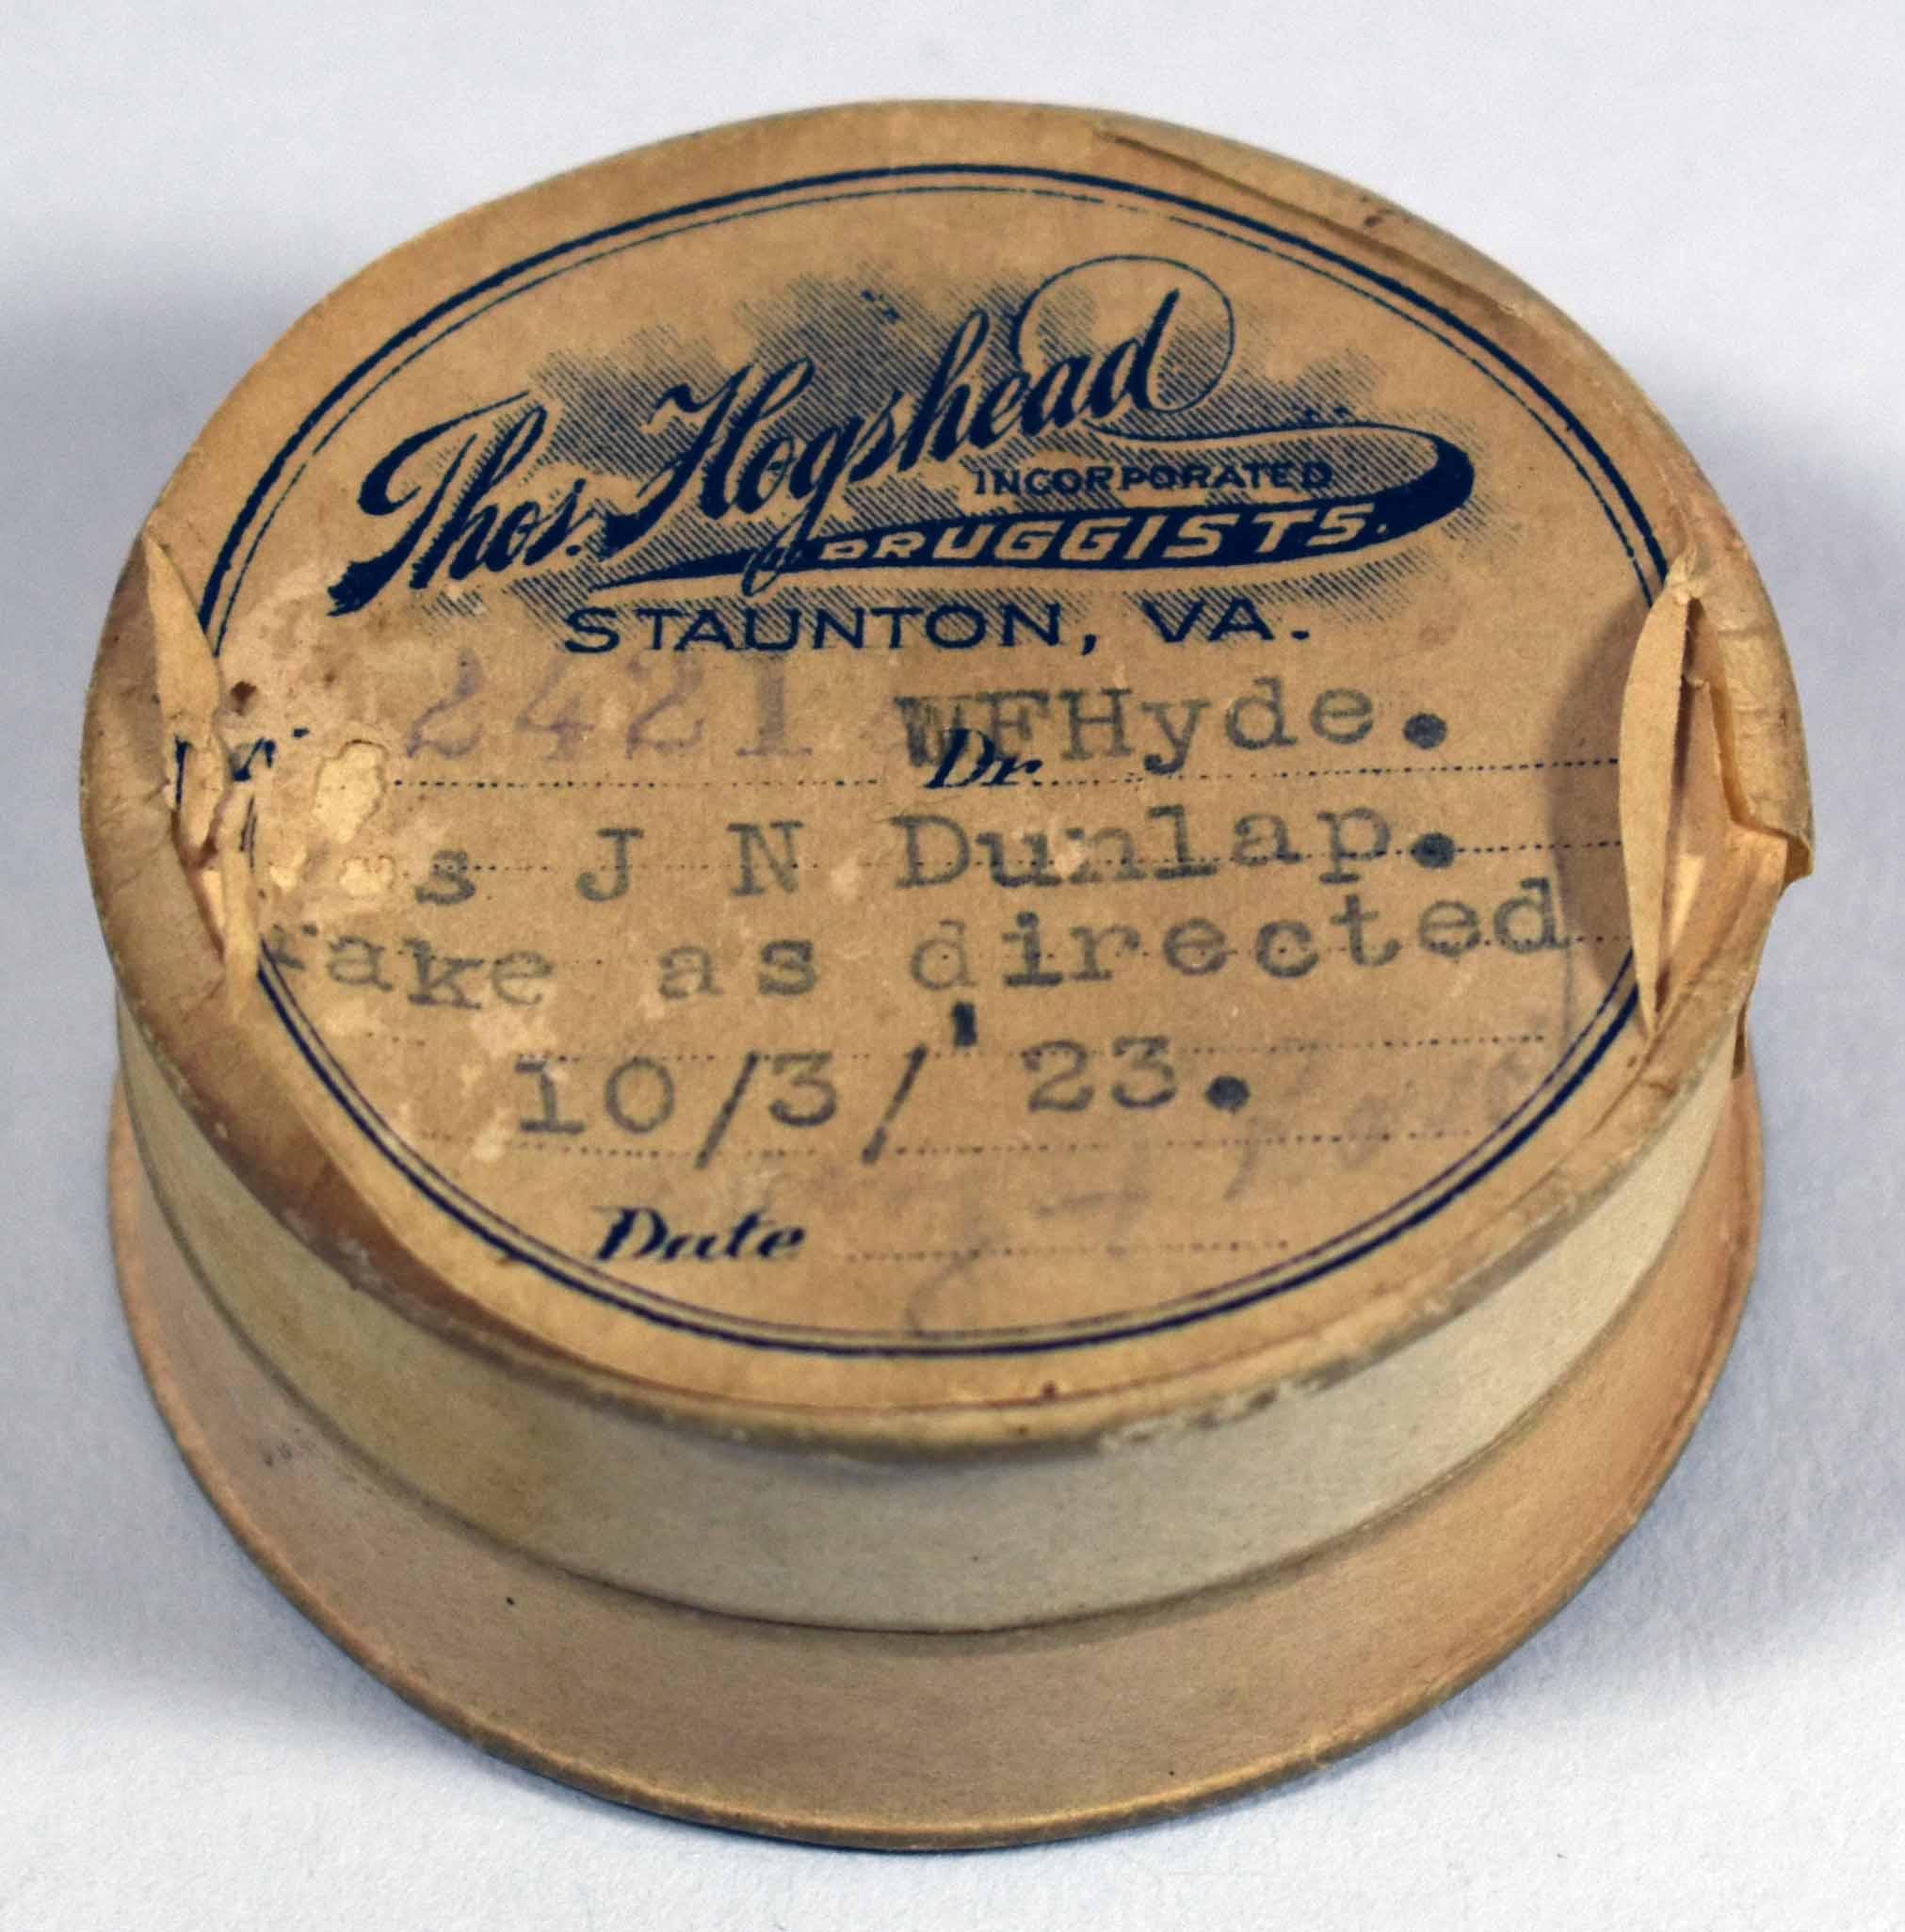 Thos. Hogshead
INCORPORATED
DRUGGISTS.
STAUNTON, VA.
2421 Dr. WFHyde.
s J N Dunlap.
Take as directed
10/3/'23.
Date